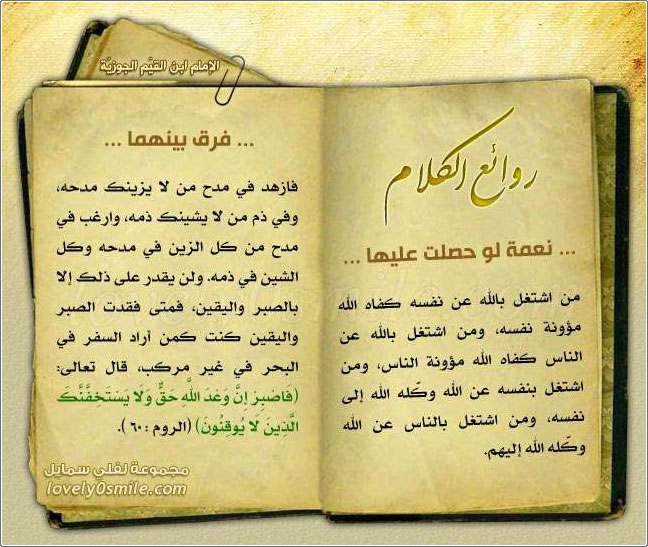 الإمام ابن القيّم الجوزيّة
روائع الكلام
... نعمة لو حصلت عليها ...
من اشتغل بالله عن نفسه كفاه الله
مؤونة نفسه، ومن اشتغل بالله عن
الناس كفاه الله مؤونة الناس، ومن
اشتغل بنفسه عن الله وكّله الله إلى
نفسه، ومن اشتغل بالناس عن الله
وكّله الله إليهم.
... فرق بينهما ...
فازهد في مدح من لا يزينك مدحه،
وفي ذم من لا يشينك ذمه، وارغب في
مدح من كل الزين في مدحه وكل
الشين في ذمه. ولن يقدر على ذلك إلا
بالصبر واليقين، فمتى فقدت الصبر
واليقين كنت كمن أراد السفر في
البحر في غير مركب، قال تعالى:
(فَاصْبِرْ إِنَّ وَعْدَ اللَّهِ حَقٌّ وَلَا يَسْتَخِفَّنَّكَ
الَّذِينَ لَا يُوقِنُونَ) (الروم : ٦٠ ).
مجموعة لفلي سمايل
lovely0smile.com